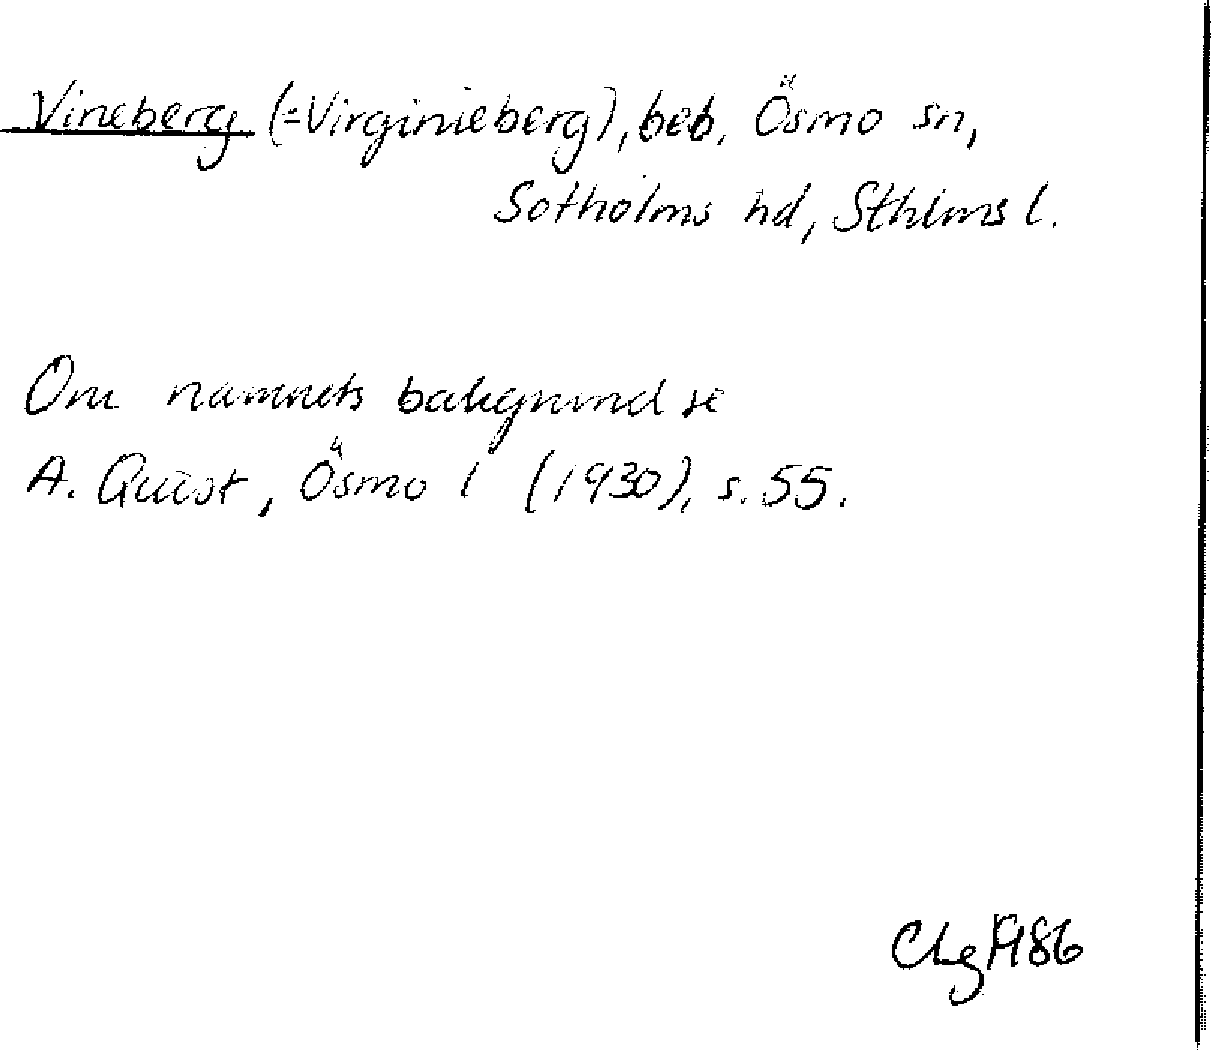 Vineberg (=Virginieberg), beb. Ösmo sn,
Sotholms hd, Sthlms l.
Om namnets bakgrund se
A. Quist, Ösmo I (1930), s. 55.
CLg 1986